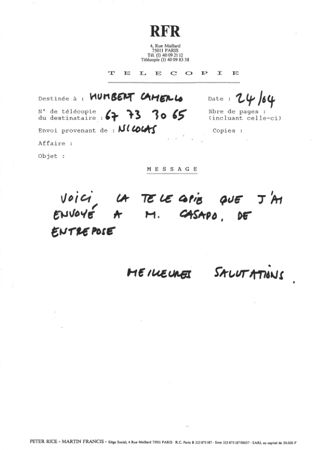 RFR
4, Rue Maillard
75011 PARIS
Tél. (1) 40 09 21 12
Télécopie (1) 40 09 83 38
TELECOPIE
Destinée à : HUMBERT CAMERLO Date : 24/04
N° de télécopie du destinataire : 67 73 30 65 Nbre de pages : (incluant celle-ci)
Envoi provenant de : NICOLAS Copies :
Affaire :
Objet :
MESSAGE
VOICI, LA TELECOPIE QUE J'AI
ENVOYÉ A M. CASADO, DE
ENTREPOSE
MEILLEURES SALUTATIONS.
PETER RICE - MARTIN FRANCIS - Siège Social, 4 Rue Maillard 75011 PARIS - R.C. Paris B